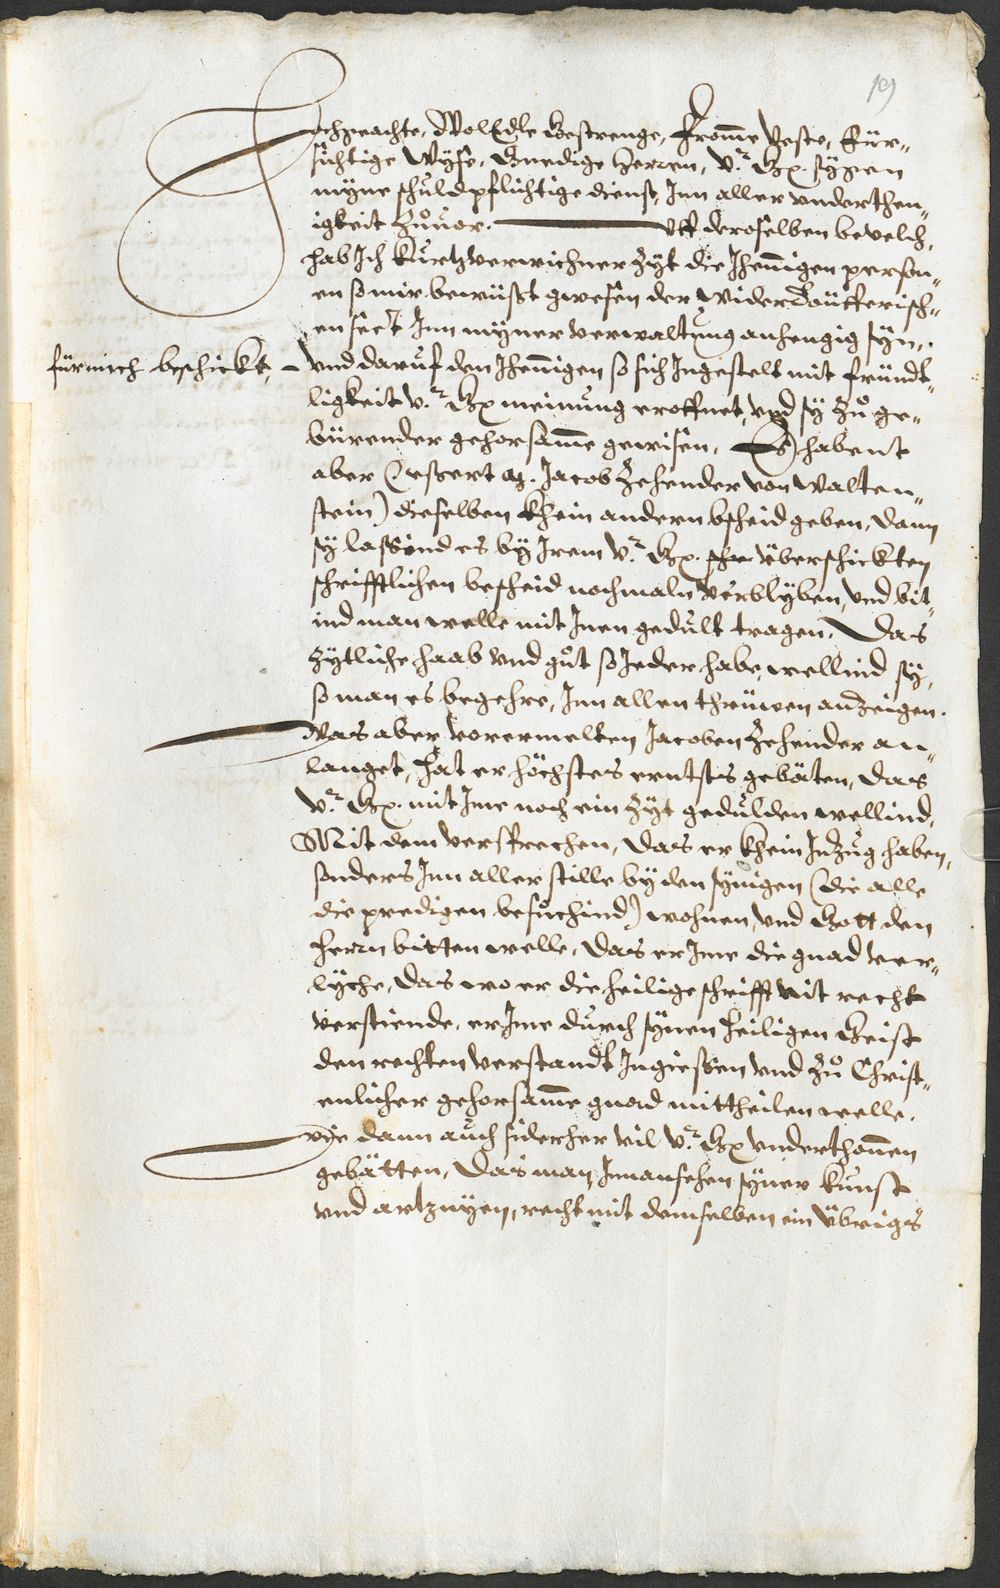 19
Hochgeachte, Wol Edle Gestrenge, Fromme Veste, Für„
sichtige Wyse, Gnedige Herren, V.r Gn. sygen
myne schuldpflichtige dienst, Inn aller vnderthen„
igkeit zůuor. Vff deroselben bevelch,
hab Ich kurtzverwichner Zyt die Jhenigen person„
en so mir bewüsst gwesen der widerdoüfferisch„
en sect Inn myner verwaltung anhengig syn,
für mich beschickt, – vnd daruf den Jhenigen so sich Ingestelt mit fründt„
ligkeit v.r Gn meinung eroffnet, vnd sy zů ge„
bürender gehorsamme gewisen, Es habent
aber (ussert M. Jacob Zehender von Walten„
stein) dieselben khein andern bscheid geben, dann
sy lassind es by Irem V.r Gn. überschickten
schrifftlichen bescheid nochmaln verblyben, vnd bit„
ind man welle mit Inen gedult tragen. Das
zytliche haab vnd gůt so Jeder habe, wellind sy,
so man es begehre, Inn allen thrüwen anzeigen.
Was aber vorermelten Jacoben Zehender an„
langet, hat er höchstes erntsts gebäten, das
V.r Gn. mit Ime noch ein Zyt gedulden wellind,
Mit dem versprechen, das er khein Inzug haben,
sonders Inn aller stille by den synigen (die alle
die predigen besůchind) wohnen, vnd Gott den
herrn bitten welle, das er Ime die gnad ver„
lyche, das wo er die heilige schrifft nit recht
verstiende, er Ime durch synen heiligen Geist
den rechten verstandt Ingiessen vnd zů Christ„
enlicher gehorsamme gnad mittheilen welle.
Wie dann auch siderher vil V.r Gn vnderthonnen
gebätten, das man Inn ansehen syner kunst
vnd artznyen, recht mit demselben ein übrigs